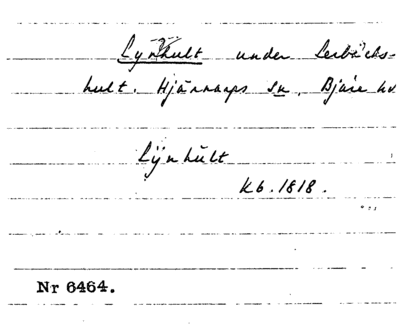 Lynhult under Lerbäcks-
hult. Hjärnarps sn, Bjäre hd
Lÿnhult
Kb. 1818.
Nr 6464.